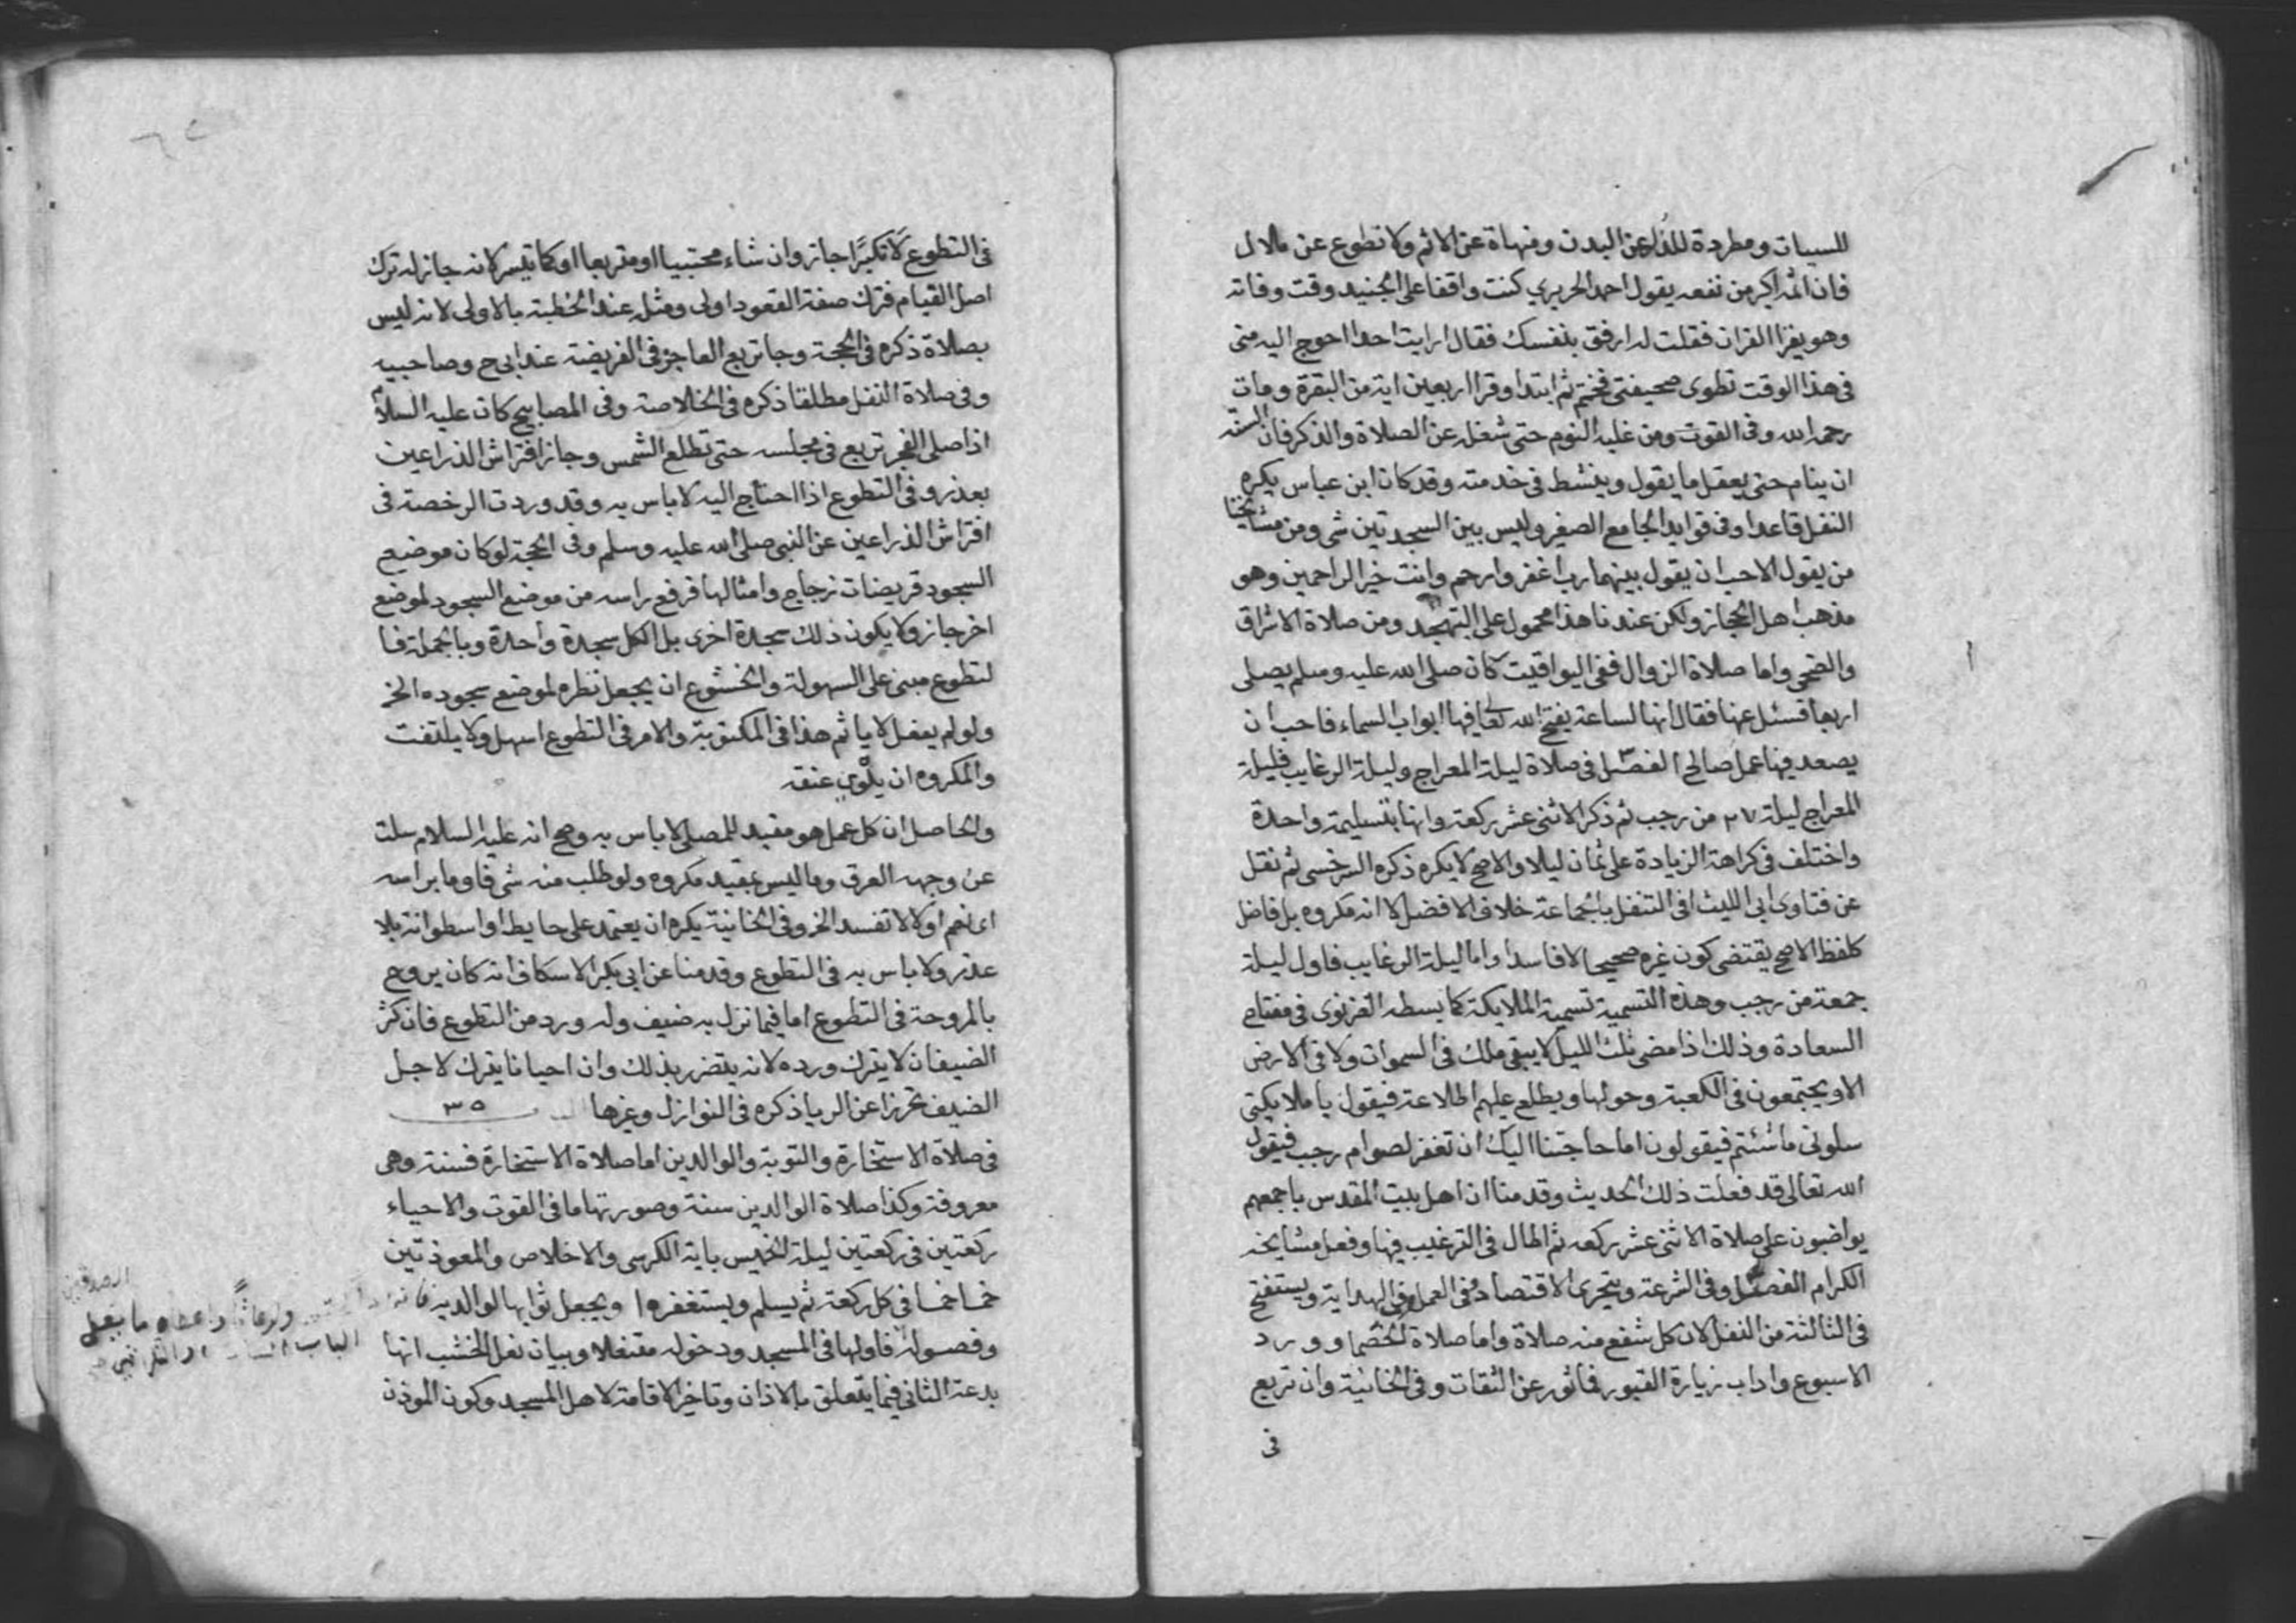 للسيات ومطردة للداء عن البدن ومنهاة عن الاثم ولا تطوع عن ملال
فان اثمه اكبر من نفعه يقول احمد الحريري كنت واقفا على الجنيد وقت وفاته
وهو يقرا القران فقلت له ارفق بنفسك فقال ارايت احدا احوج اليه منى
فى هذا الوقت تطوى صحيفتى فختم ثم ابتدا وقرا اربعين اية من البقرة ومات
رحمه الله وفى القوت ومن غلبه النوم حتى شغله عن الصلاة والذكر فان السنة
ان ينام حتى يعقل ما يقول وينشط فى خدمته وقد كان ابن عباس يكره
النفل قاعدا وفى فوايد الجامع الصغير وليس بين السجدتين شى ومن مشايخنا
من يقول الاحب ان يقول بينهما رب اغفر وارحم وانت خير الراحمين وهو
مذهب اهل الحجاز ولكن عندنا هذا محمول على التهجد ومن صلاة الاشراق
والضحى واما صلاة الزوال ففى اليواقيت كان صلى الله عليه وسلم يصلى
اربعا فسئل عنها فقال انها لساعة يفتح الله تعا فيها ابواب السماء فاحب ان
يصعد فيها عمل صالح الفصل فى صلاة ليلة المعراج وليلة الرغايب فليلة
المعراج ليلة ٢٧ من رجب ثم ذكر الاثنى عشر ركعة وانها بتسليمة واحدة
واختلف فى كراهة الزيادة على ثمان ليلا والاصح لا يكره ذكره السرخسى ثم نقل
عن فتاوى ابى الليث افى التنفل بالجماعة خلاف الافضل لا انه مكروه بل فاضل
كلفظ الاصح يقتضى كون غيره صحيحا لا فاسدا واما ليلة الرغايب فاول ليلة
جمعة من رجب وهذه التسمية تسمية الملايكة كما بسطه الغزنوى فى مفتاح
السعادة وذلك اذا مضى ثلث الليل لا يبقى ملك فى السموات ولا فى الارض
الا ويجتمعون فى الكعبة وحولها ويطلع عليهم اطلاعة فيقول يا ملايكتى
سلونى ما شئتم فيقولون اما حاجتنا اليك ان تغفر لصوام رجب فيقول
الله تعالى قد فعلت ذلك الحديث وقدمنا ان اهل بيت المقدس باجمعهم
يواضبون على صلاة الاثنى عشر ركعه ثم اطال فى الترغيب فيها وفعل مشايخه
الكرام الفصل وفى الشرعة ويتحرى الاقتصاد فى العمل وفى الهداية ويستفتح
فى الثالثة من النفل لان كل شفع منه صلاة واما صلاة الخصما وورد
الاسبوع واداب زيارة القبور فماثور عن الثقات وفى الخانية وان تربع
فى
فى التطوع لا تكبرا جاز وان شاء محتبيا او متربعا او كما تيسر لانه جاز له ترك
اصل القيام فترك صفة القعود اولى ومثله عند الخطبة بالاولى لانه ليس
بصلاة ذكره فى الحجة وجا تربع العاجز فى الفريضة عند ابى ح وصاحبيه
وفى صلاة النفل مطلقا ذكره فى الخلاصة وفى المصابيح كان عليه السلام
اذا صلى الفجر تربع فى مجلسه حتى تطلع الشمس وجاز افتراش الذراعين
بعذر وفى التطوع اذا احتاج اليه لا باس به وقد وردت الرخصة فى
افتراش الذراعين عن النبى صلى الله عليه وسلم وفى الحجة لو كان موضع
السجود قريضات زجاج وامثالها فرفع راسه من موضع السجود لموضع
اخر جاز ولا يكون ذلك سجدة اخرى بل الكل سجدة واحدة وبالجملة فا
لتطوع مبنى على السهولة والخشوع ان يجعل نظره لموضع سجوده الخ
ولو لم يفعل لا ياثم هذا فى المكتوبة والامر فى التطوع اسهل ولا يلتفت
والمكروه ان يلوي عنقه
والحاصل ان كل عمل هو مفيد للمصلى لا باس به وصح انه عليه السلام سلت
عن وجهه العرق وما ليس بمفيد مكروه ولو طلب منه شى فاوما براسه
اى نعم او لا لا تفسد الخ وفى الخانية يكره ان يعتمد على حايط او اسطوانة بلا
عذر ولا باس به فى التطوع وقدمنا عن ابى بكر الاسكاف انه كان يروح
بالمروحة فى التطوع اما فيما نزل به ضيف وله ورد من التطوع فان كثر
الضيفان لا يترك ورده لانه يتضرر بذلك وان احيانا يترك لاجل
الضيف تحرزا عن الريا ذكره فى النوازل وغيرها ٣٥
فى صلاة الاستخارة والتوبة والوالدين اما صلاة الاستخارة فسنة وهى
معروفة وكذا صلاة الوالدين سنة وصورتها ما فى القوت والاحياء
ركعتين فى ركعتين ليلة الخميس باية الكرسى والاخلاص والمعوذتين
خمسا خمسا فى كل ركعة ثم يسلم ويستغفر ويجعل ثوابها لوالديه
وفصوله فاولها فى المسجد ودخوله متنفلا وبيان نعل الخشب انها
بدعة الثانى فيما يتعلق بالاذان وتاخير الاقامة لاهل المسجد وكون الموذن